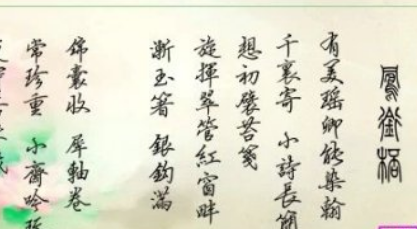 鳳銜杯
有美瑤卿能染翰
千里寄 小詩長簡
想初襞苔箋
旋揮翠管紅窗畔
漸玉箸 銀鉤滿
錦囊收 犀軸卷
常珍重 小齋吟